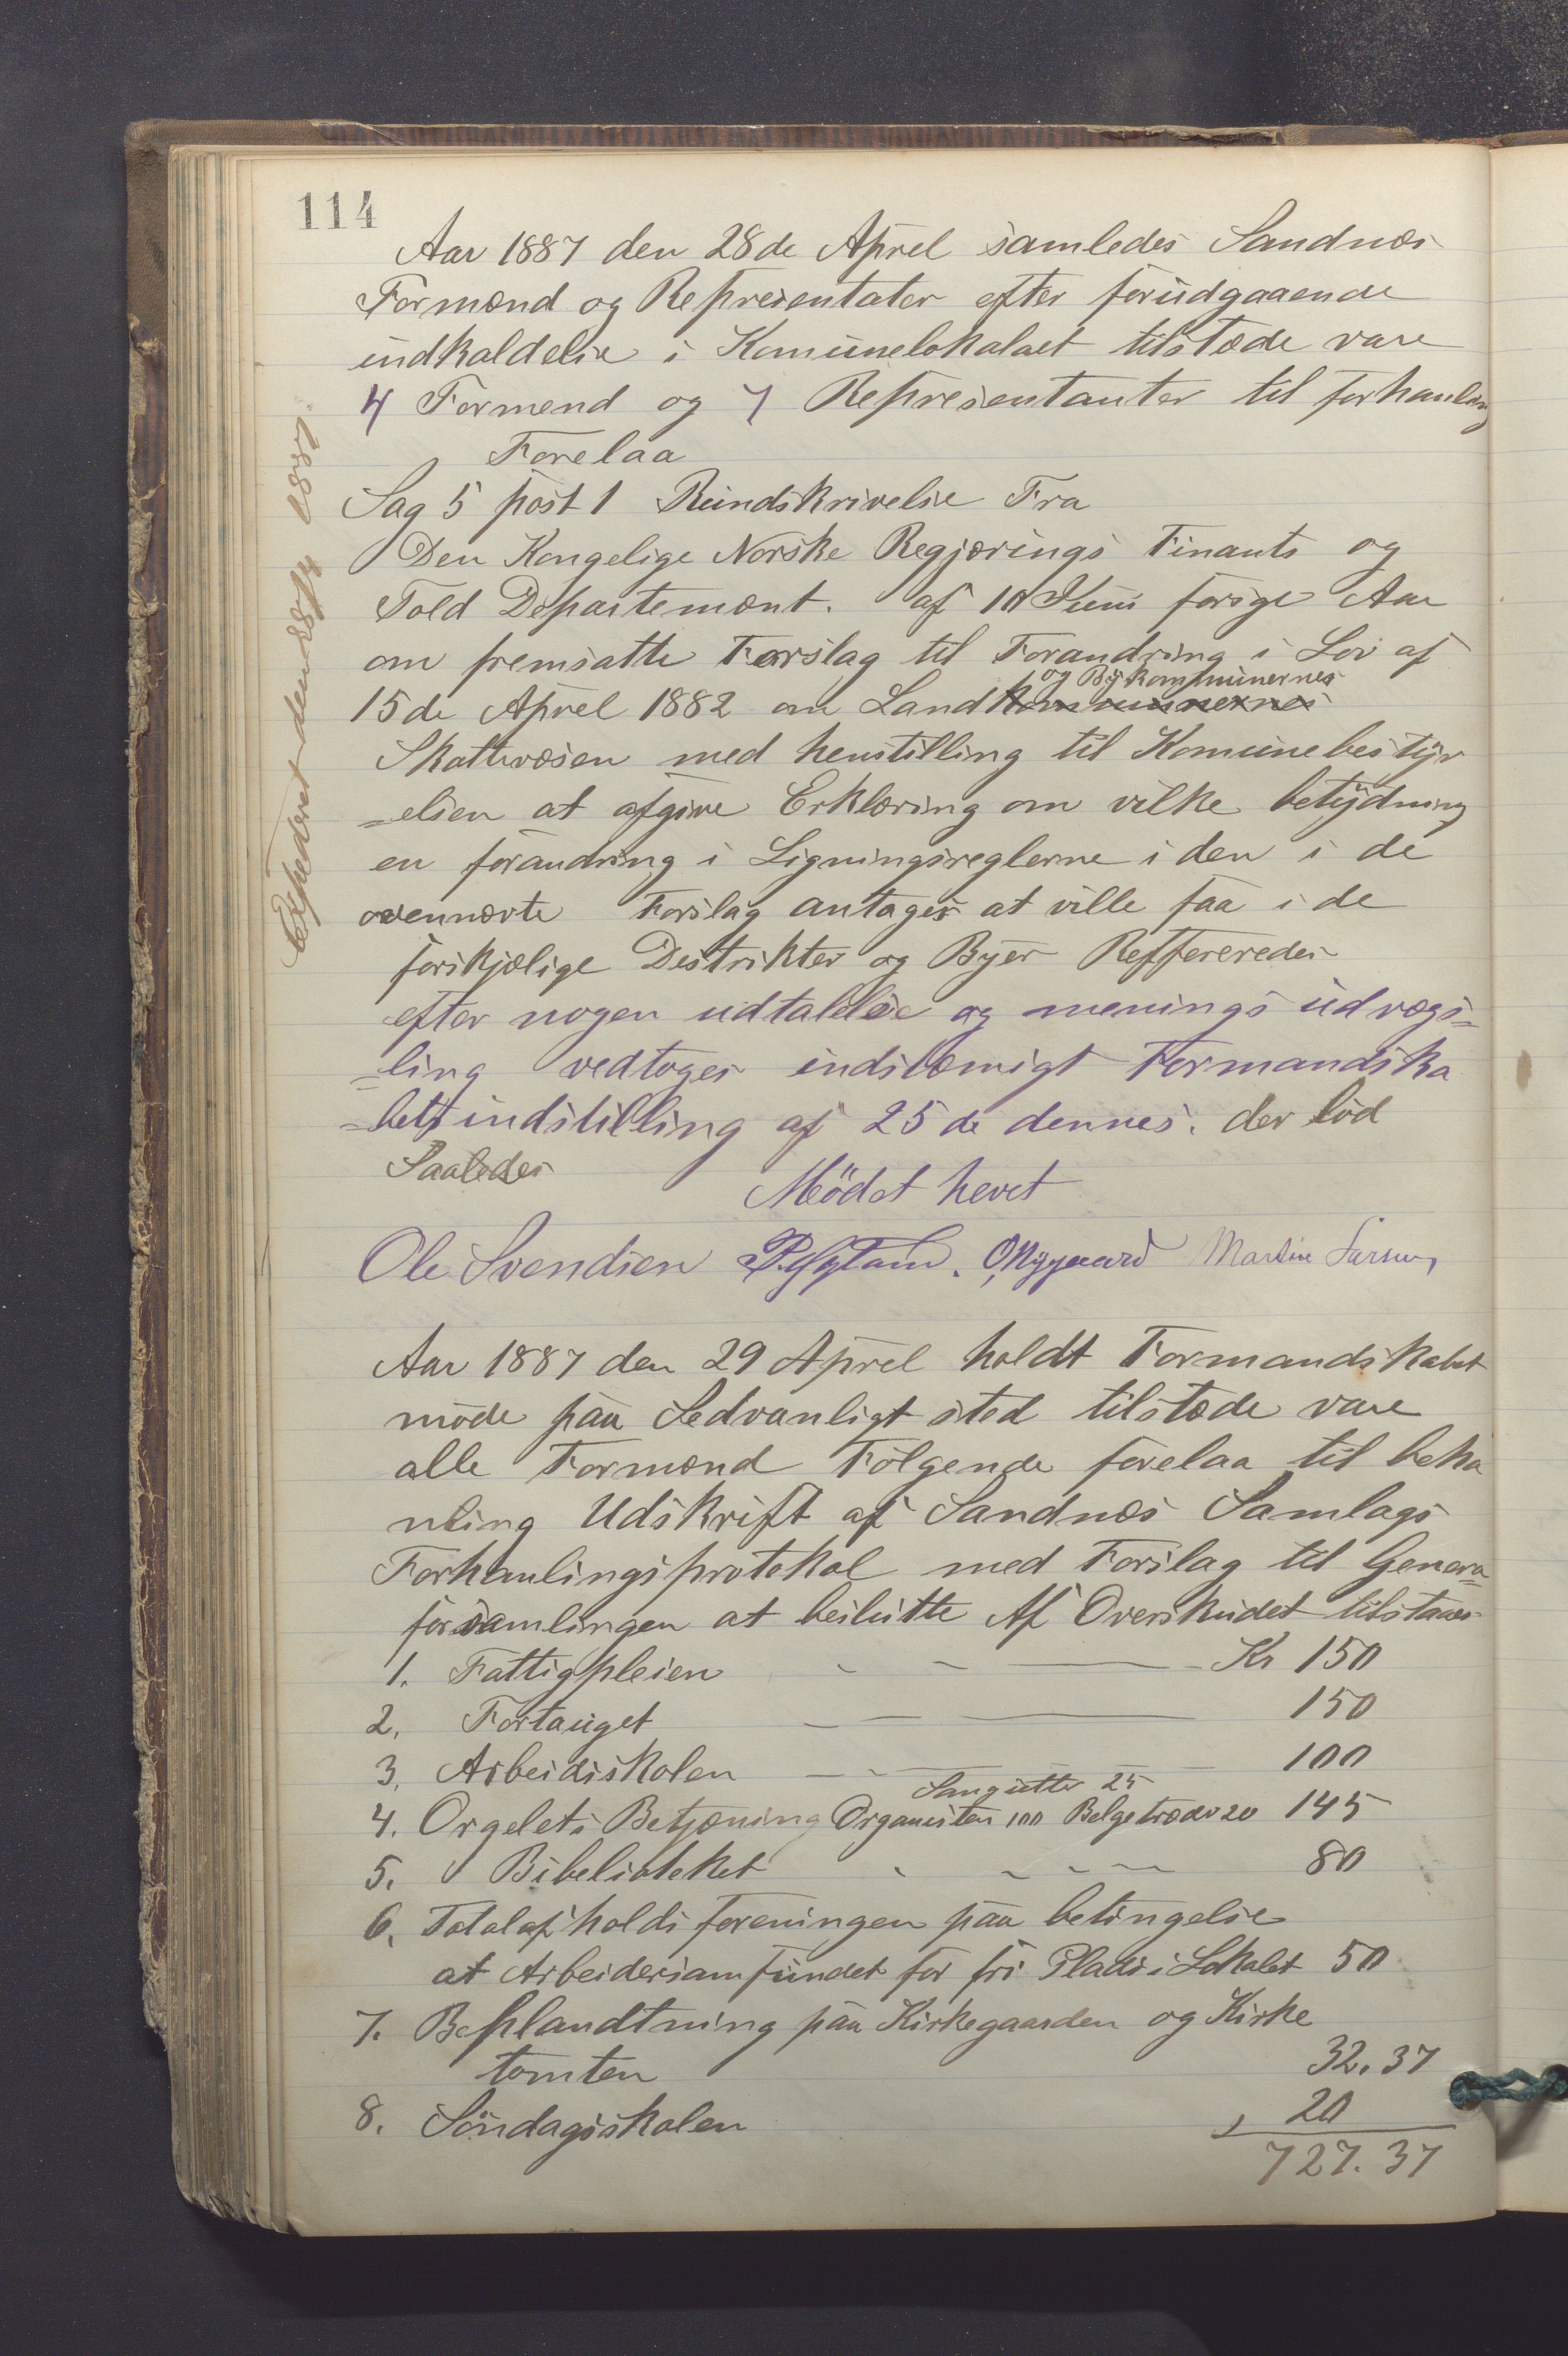 114
Aar 1887 den 28de Aprel samledes Sandnæs
Formænd og Represientater efter forudgaaende
indkaldelse i Komunelokalaet tilstæde vare
4 Formend og 7 Representanter til forhanling
Forelaa
Sag 5 post 1 Rundskrivelse Fra
Den Kongelige Norske Regjærings Finants og
Told Departemænt. af 10 Juni forige Aar
om fremsatte Forslag til Forandring i Lov af
og Bykommunernes
15de Aprel 1882 om Landkommunernes
Skattevæsen med henstilling til Komunebestyr
=elsen at afgive Erklæring om vilke betydning
en forandring i Ligningsreglerne i den i de
ovennævte Forslag antages at ville faa i de
forskjælige Destrikter og Byer Refferredes
efter nogen udtalelse og menings udvægs=
=ling vedtoges indstæmigt Formandska
=bets indstilling af 25de dennes. der lød
Saaledes
Mödet hevet
Ole Svendsen O. Nygaard Martin Larsen
Expederet den 28/4 1887.
Aar 1887 den 29 Aprel holdt Formandskabet
møde paa Sedvanligt sted tilstæde vare
alle Formænd Følgende forelaa til beha
nling Udskrift af Sandnæs Samlags
Forhanlingsprotokol med Forslag til Genera=
forsamlingen at beslutte Af Overskudet tilstaaes
1. Fattigpleien Kr 150
2. Fortauget 150
3. Arbeidsskolen 100
Sangutter 25
4. Orgelets Betjæning Organisten 100 Belgetræder 20 145
5. Bibelioteket 80
6. Totalafholdsforeningen paa betingelse
at Arbeidersamfundet for fri Plads i Lokalet 50
7. Beplandtning paa Kirkegaarden og Kirke
tomten 32.37
8. Søndagsskolen 20
727.37